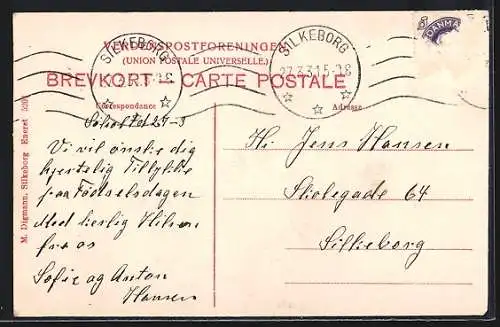 VERDENSPOSTFORENINGEN
(UNION POSTALE UNIVERSELLE.)
BREVKORT - CARTE POSTALE
Correspondance
Adresse
SILKEBORG
SILKEBORG
27.3.31.5-3S
DANMA
M. Digmann, Silkeborg Eneret
27-3
Vi vil ønske dig
hjertelig Tillykke
paa Fødselsdagen
Med kerlig Hilsen
fra os
Sofie og Anton
Hansen
Hi Jens Hansen
Skolegade 64
Silkeborg